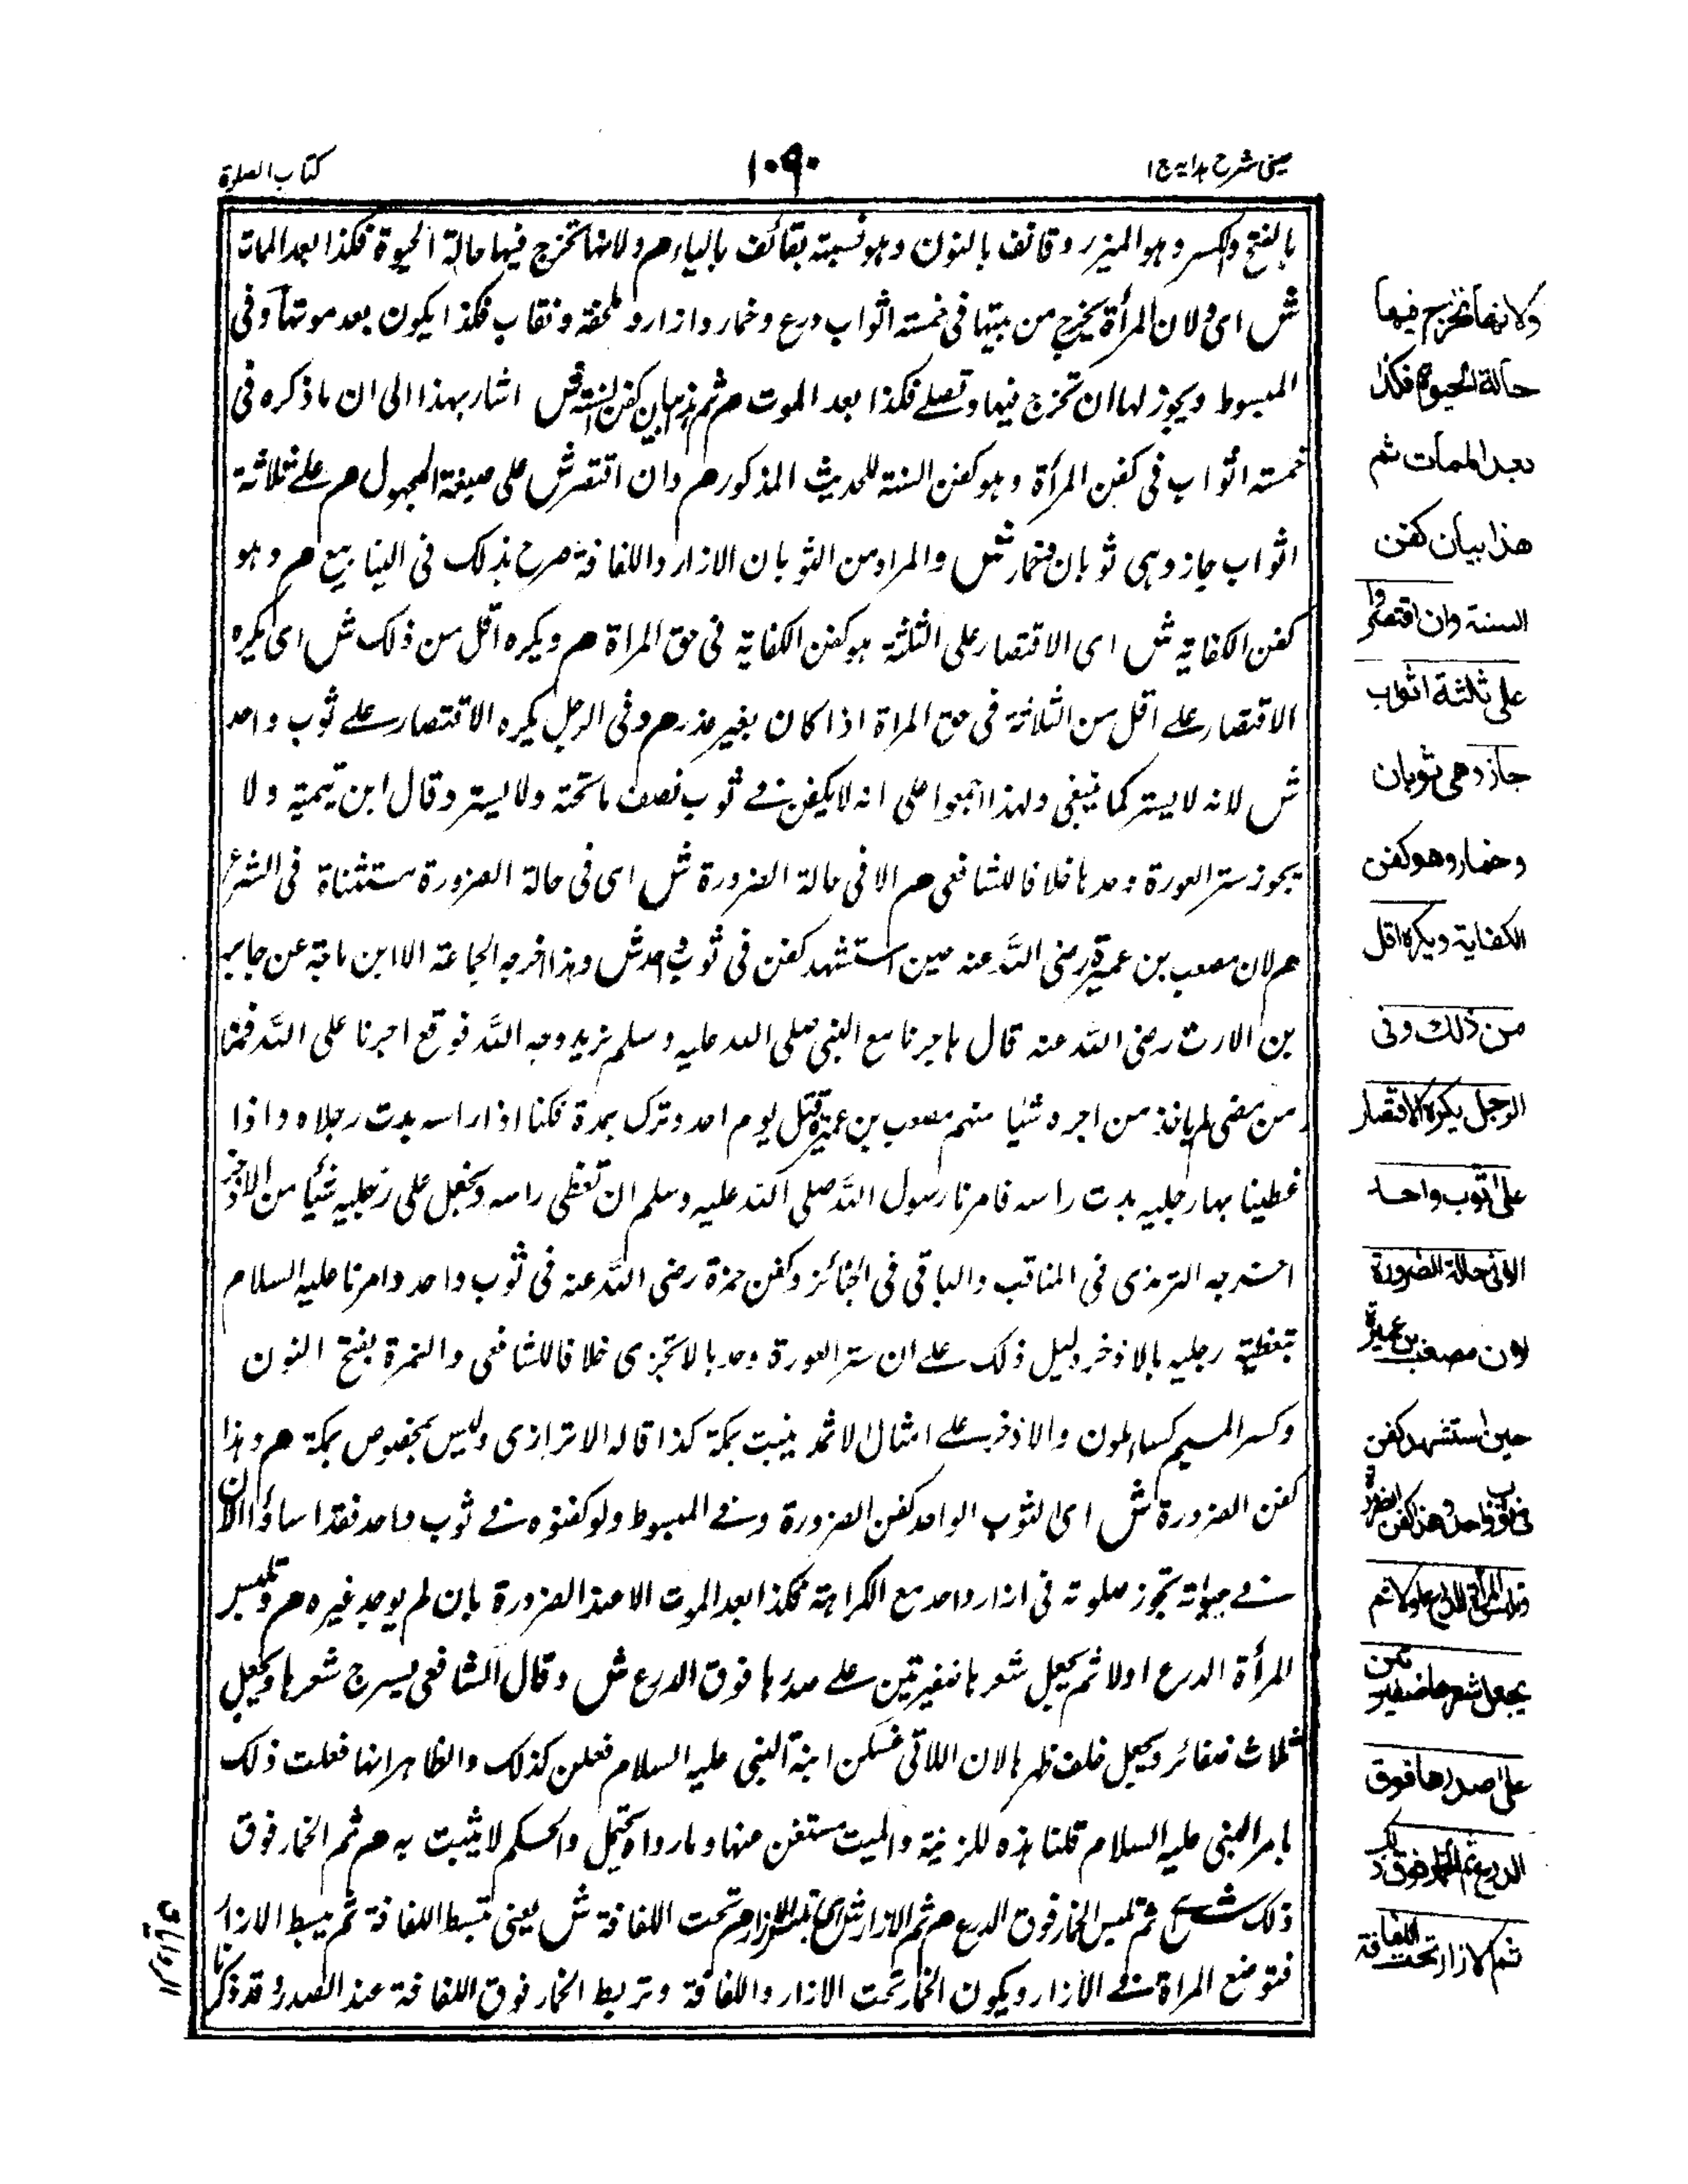 عینی شرح هدایه ج ۱
۱۰۹۰
کتاب الصلوة
بالفتح والکسر وهو المیزر وقانف بالنون وهو نسبته بقائف بالیاء هم ولانها تخرج فیها حالة الحیوة فکذا بعد الممات
ش ای ولان المرأة تخرج من بیتها فی خمسته اثواب درع وخمار وازار وملحفه ونقاب فکذا یکون بعد موتها وفی
المبسوط ویجوز لها ان تخرج فیها وتصلے فکذا بعد الموت هم ثم هذا بیان کفن السنة ش اشار بهذا الی ان ما ذکره فی
خمسته اثواب فی کفن المرأة وهو کفن السنة للحدیث المذکور هم وان اقتصر ش علی صیغة المجهول هم علے ثلاثة
اثواب جاز وہی ثوبان وخمار ش والمراد من الثوبان الازار واللفافة صرح بذلک فی الینابیع هم وهو
کفن الکفایة ش ای الاقتصار علی الثلثة هو کفن الکفایة فی حق المراة هم ویکره اقل من ذلک ش ای یکره
الاقتصار علے اقل من الثلاثة فی حق المراة اذا کان بغیر عذر هم وفی الرجل یکره الاقتصار علے ثوب واحد
ش لانه لا یستر کما ینبغی ولهذا اجمعوا علی انه لا یکفن فے ثوب نصف ما تحته ولا یستر وقال ابن تیمیة ولا
یجوز ستر العورة وحدها خلافا للشافعی هم الا فی حالة الضرورة ش ای فی حالة الضرورة مستثناة فی الشرع
هم لان مصعب بن عمیرة رضی الله عنه حین استشهد کفن فی ثوب واحد ش وهذا اخرجه الجماعة الا ابن ماجة عن جابر
بن الارت رضی الله عنه قال هاجرنا مع النبی صلی الله علیه وسلم نرید وجه الله فوقع اجرنا علی الله فمنا
من مضی لم یاخذ من اجره شیا منهم مصعب بن عمیرة قتل یوم احد وترک بمدة فکنا اذا راسه بدت رجلاه واذا
غطینا بها رجلیه بدت راسه فامرنا رسول الله صلی الله علیه وسلم ان نغطی راسه ونجعل علی رجلیه شیا من الاذخر
اخرجه الترمذی فی المناقب والباقی فی الجنائز وکفن حمزة رضی الله عنه فی ثوب واحد وامرنا علیه السلام
بتغطیة رجلیه بالاذخر دلیل ذلک علے ان ستر العورة وحدها لا تجزی خلافا للشافعی والنمرة بفتح النون
وکسر المیم کساء ملون والاذخر علے امثال الاثمد ینبت بمکة کذا قاله الاترازی ولیس بخصوص بمکة هم وهذا
کفن الضرورة ش ای الثوب الواحد کفن الضرورة وفے المبسوط ولو کفنوه فے ثوب واحد فقد اساؤا لان
فے حیاته تجوز صلوته فی ازار واحد مع الکراهة فکذا بعد الموت الا عند الضرورة بان لم یوجد غیره هم وتلبس
المرأة الدرع اولا ثم یجعل شعرها ضفیرتین علے صدرها فوق الدرع ش وقال الشافعی یسرح شعرها ویجعل
ثلاث ضفائر ویجعل خلف ظهرها لان اللاتی غسلن ابنة النبی علیه السلام فعلن کذلک والظاهر انها فعلت ذلک
بامر النبی علیه السلام قلنا هذه للزینة والمیت مستغن عنها وما رواه یحتمل والحکم لا یثبت به هم ثم الخمار فوق
ذلک ش ثم تلبس الخمار فوق الدرع هم ثم الازار ش هم تحت اللفافة ش یعنی تبسط اللفافة ثم یبسط الازار
فتوضع المراة فے الازار ویکون الخمار تحت الازار واللفافة وتربط الخمار فوق اللفافة عند الصدر وقد ذکرنا
ولانها تخرج فیها
حالة الحیوة فکذا
بعد الممات ثم
هذا بیان کفن
السنة وان اقتصروا
علی ثلثة اثواب
جاز وهی ثوبان
وخمار وهو کفن
الکفایة ویکره اقل
من ذلک وفی
الرجل یکره الاقتصار
علی ثوب واحد
الا فی حالة الضرورة
لان مصعب بن عمیرة
حین استشهد کفن
فی ثوب واحد وهذا کفن الضرورة
وتلبس المرأة الدرع اولا ثم
یجعل شعرها ضفیرتین
علی صدرها فوق
الدرع ثم الخمار فوق ذلک
ثم الازار تحت اللفافة